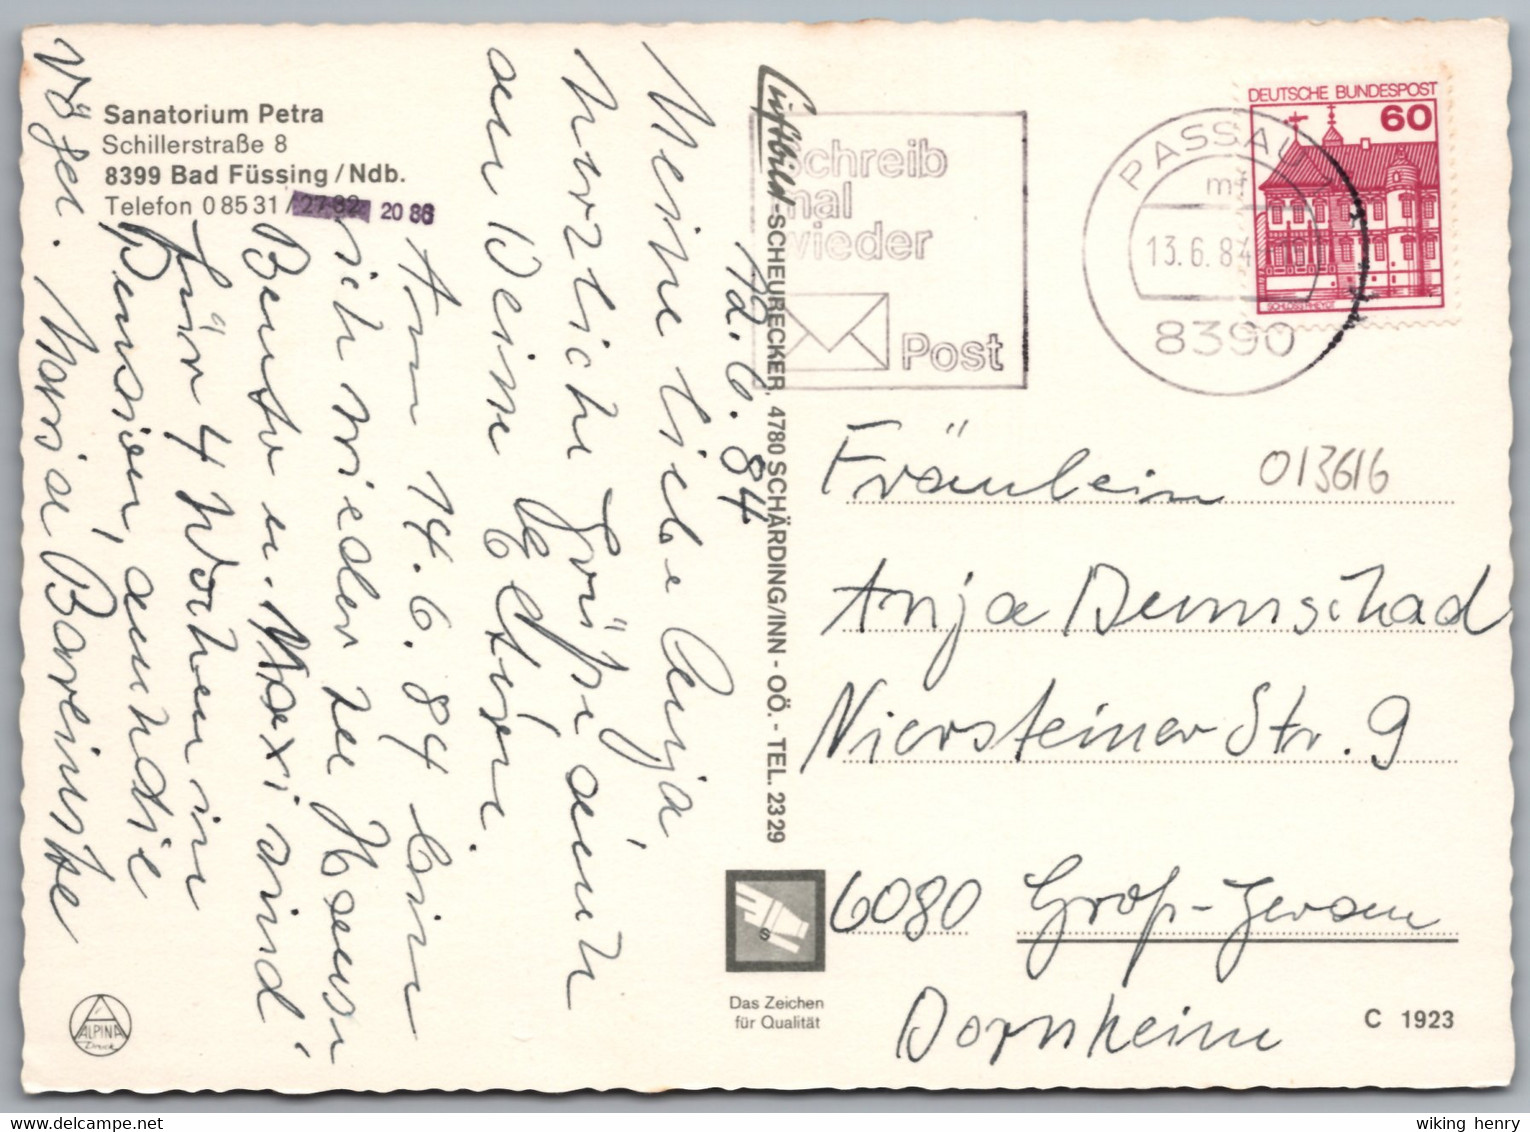 Sanatorium Petra
Schillerstraße 8
8399 Bad Füssing/Ndb.
Telefon 0 85 31/27 82 20 86
12.6.84
Meine liebe Anja
herzliche Grüße auch
an Deine Eltern.
Am 14.6.84 bin
ich wieder zu Hause
Bento u. Maxi sind
für 4 Wochen in
Pension, auch die
Vögel. Maria
Luftbild-SCHEURECKER, 4780 SCHÄRDING/INN - OÖ. - TEL. 23 29
Schreib
mal
wieder
Post
PASSAU 1
mf
13.6.84
8390
DEUTSCHE BUNDESPOST
60
SCHLOSS RHEYDT
013616
Fräulein
Anja
Niersteiner Str. 9
6080 Groß-Gerau
Dornheim
Das Zeichen
für Qualität
C 1923
ALPINA
Druck
wiking henry